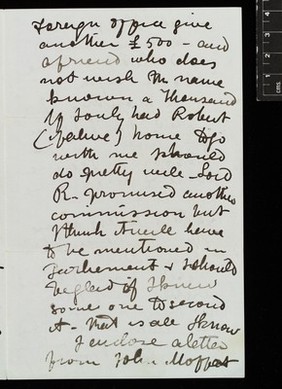 Foreign Office give
another £500 - and
a friend who does
not wish his name
known a thousand
If I only had Robert
(native) home to go
with me I should
do pretty well - Lord
R. promised another
commission but
I think it will have
to be mentioned in
Parliament & I should
be glad if I knew
some one to second
it - that is all I know
I enclose a letter
from John Moffat
cms
1
2
3
4